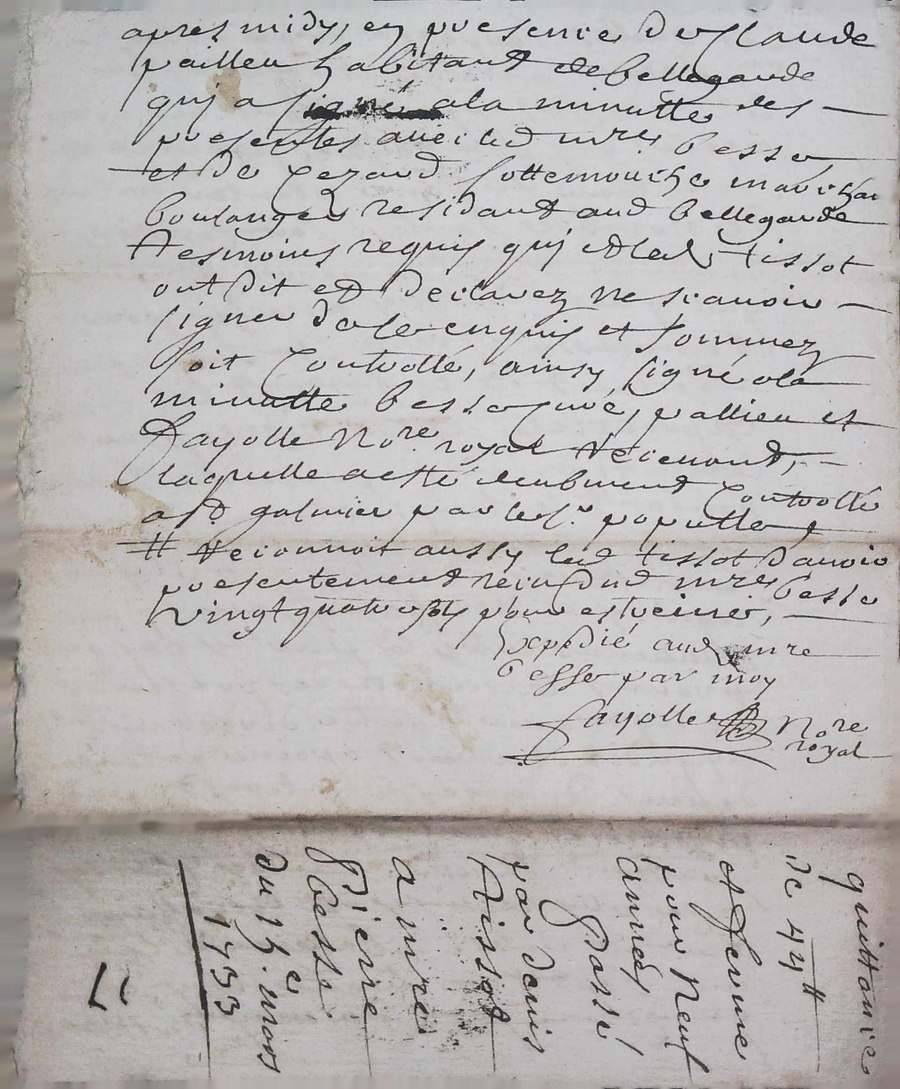 apres midy, en presence de Claude
paillieu habitant de bellegarde
qui a signé a la minutte des
presentes avec led mre besse
et de Cezard Sottemouche marchan
boulanger residant aud bellegarde
tesmoins requis qui et led tissot
ont dit et declarez ne scavoir
signer de ce enquis et sommez
soit Controllé, ainsy signé a la
minutte besse curé, paillieu et
Fayolle Nore royal recevant,
laquelle acte deubment Controllé
a St galmier par le Sr populle
# Reconnoit aussy led tissot d'avoir
presentement receu dud mre besse
vingt quatre sols pour estreine,
Expedié aud mre
besse par moy
Fayolle Nore
royal
quittance
de 44 #
et ferme
pour Neuf
années
Passé
par denis
tissot
a mre
Pierre
besse
du 15e mars
1733